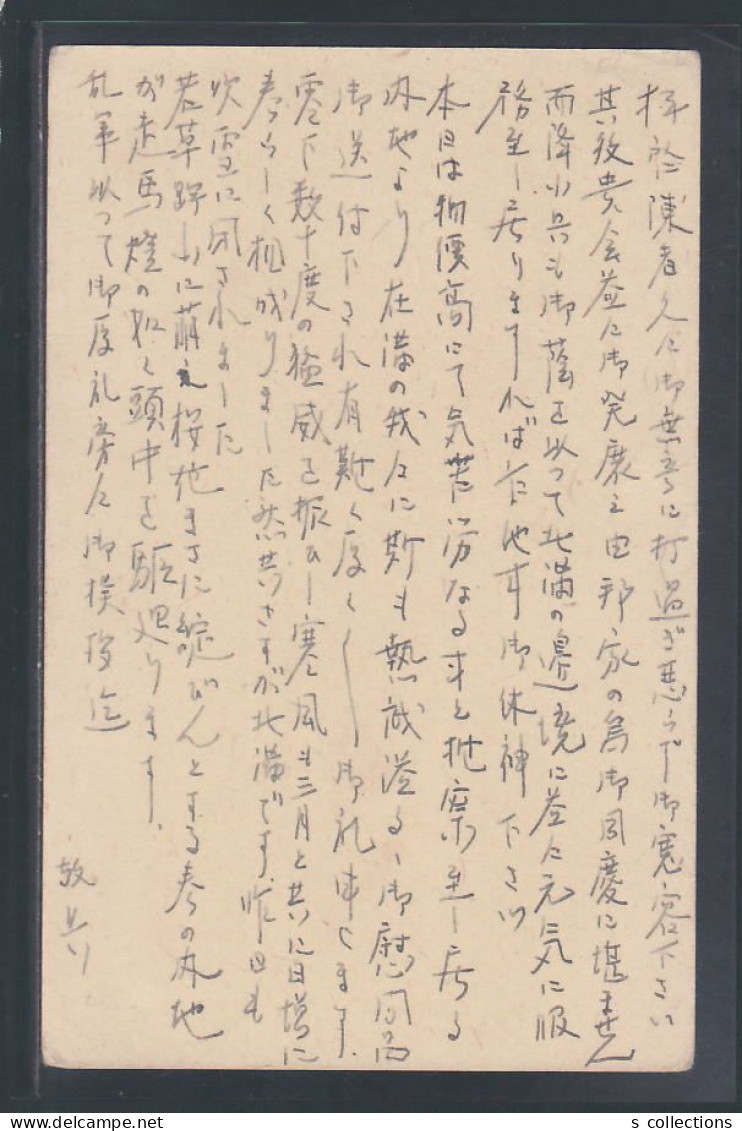 拝啓陳者久々御無音に打過ぎ悪らず御寛容下さい
其後貴会益々御発展之由邦家の為御同慶に堪ません
而降小兵も御蔭を以って北満の邊境に益々元気に服
務至し居りますれば乍他事御休神下さい
本日は物價高にて気苦労なる事と推察至し居る
内地より在満の我々に斯も熱誠溢るゝ御慰問品
御送付下され有難く厚く〱御礼申します。
零下数十度の猛威を振ひし寒風も三月と共に日増に
春らしく相成りました然共さすが北満です。昨日も
吹雪に閉されました
若草野山に萌え桜花まさに綻びんとする春の内地
が走馬燈の如く頭中を駆廻ります。
乱筆以って御厚礼旁々御挨拶迄
敬具
s collections